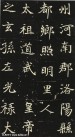 州河南郡洛陽縣
都鄉照明里人
太祖道武皇帝
之玄孫左光祿